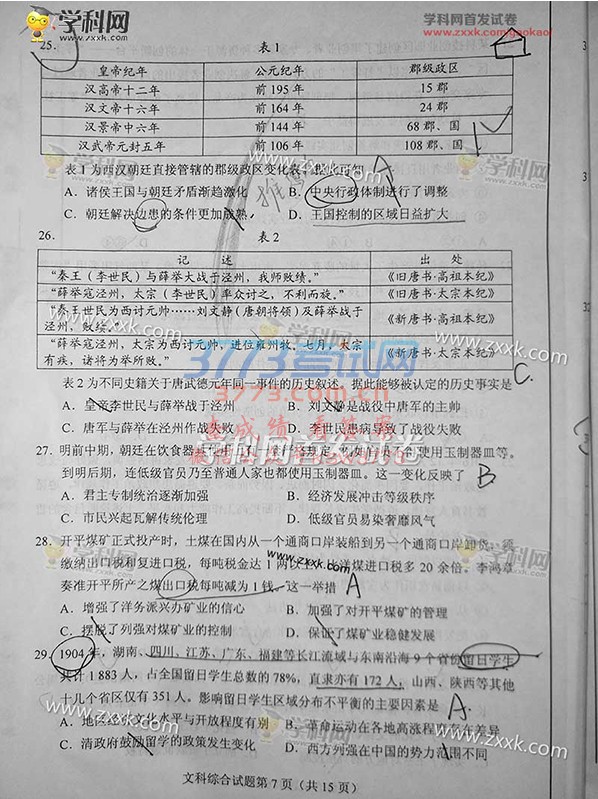 学科网
www.zxxk.com
学科网首发试卷
www.zxxk.com/gaokao/
25.
表1
皇帝纪年 公元纪年 郡级政区
汉高帝十二年 前195年 15郡
汉文帝十六年 前164年 24郡
汉景帝中六年 前144年 68郡、国
汉武帝元封五年 前106年 108郡、国
表1为西汉朝廷直接管辖的郡级政区变化表。据此可知 A
A. 诸侯王国与朝廷矛盾渐趋激化 B. 中央行政体制进行了调整
C. 朝廷解决边患的条件更加成熟 D. 王国控制的区域日益扩大
26.
表2
记述 出处
“秦王(李世民)与薛举大战于泾州,我师败绩。” 《旧唐书·高祖本纪》
“薛举寇泾州,太宗(李世民)率众讨之,不利而旋。” 《旧唐书·太宗本纪》
“秦王世民为西讨元帅……刘文静(唐朝将领)及薛举战于
泾州,败绩。” 《新唐书·高祖本纪》
“薛举寇泾州,太宗为西讨元帅,进位雍州牧。七月,太宗
有疾,诸将为举所败。” 《新唐书·太宗本纪》
3773考试网
3773.com.cn
表2为不同史籍关于唐武德元年同一事件的历史叙述。据此能够被认定的历史事实是 C.
A. 皇帝李世民与薛举战于泾州 B. 刘文静是战役中唐军的主帅
C. 唐军与薛举在泾州作战失败 D. 李世民患病导致了战役失败
学科网首发试卷
27. 明前中期,朝廷在饮食器
使用玉制器皿等。
到明后期,连低级官员乃至普通人家也都使用玉制器皿。这一变化反映了 B
A. 君主专制统治逐渐加强 B. 经济发展冲击等级秩序
C. 市民兴起瓦解传统伦理 D. 低级官员易染奢靡风气
28. 开平煤矿正式投产时,土煤在国内从一个通商口岸装船到另一个通商口岸卸货,须
缴纳出口税和复进口税,每吨税金达1两以
洋煤进口税多20余倍。李鸿章
奏准开平所产之煤出口税每吨减为1钱。这一举措 A
A. 增强了洋务派兴办矿业的信心 B. 加强了对开平煤矿的管理
C. 摆脱了列强对煤矿业的控制 D. 保证了煤矿业稳健发展
29. 1904年,湖南、四川、江苏、广东、福建等长江流域与东南沿海9个省份留日学生
共计1883人,占全国留日学生总数的78%,直隶亦有172人,山西、陕西等其他
十几个省区仅有351人。影响留日学生区域分布不平衡的主要因素是 A.
A. 地区经济文化水平与开放程度有别 B. 革命运动在各地高涨程度存在差异
C. 清政府鼓励留学的政策发生变化 D. 西方列强在中国的势力范围不同
文科综合试题第7页(共15页)